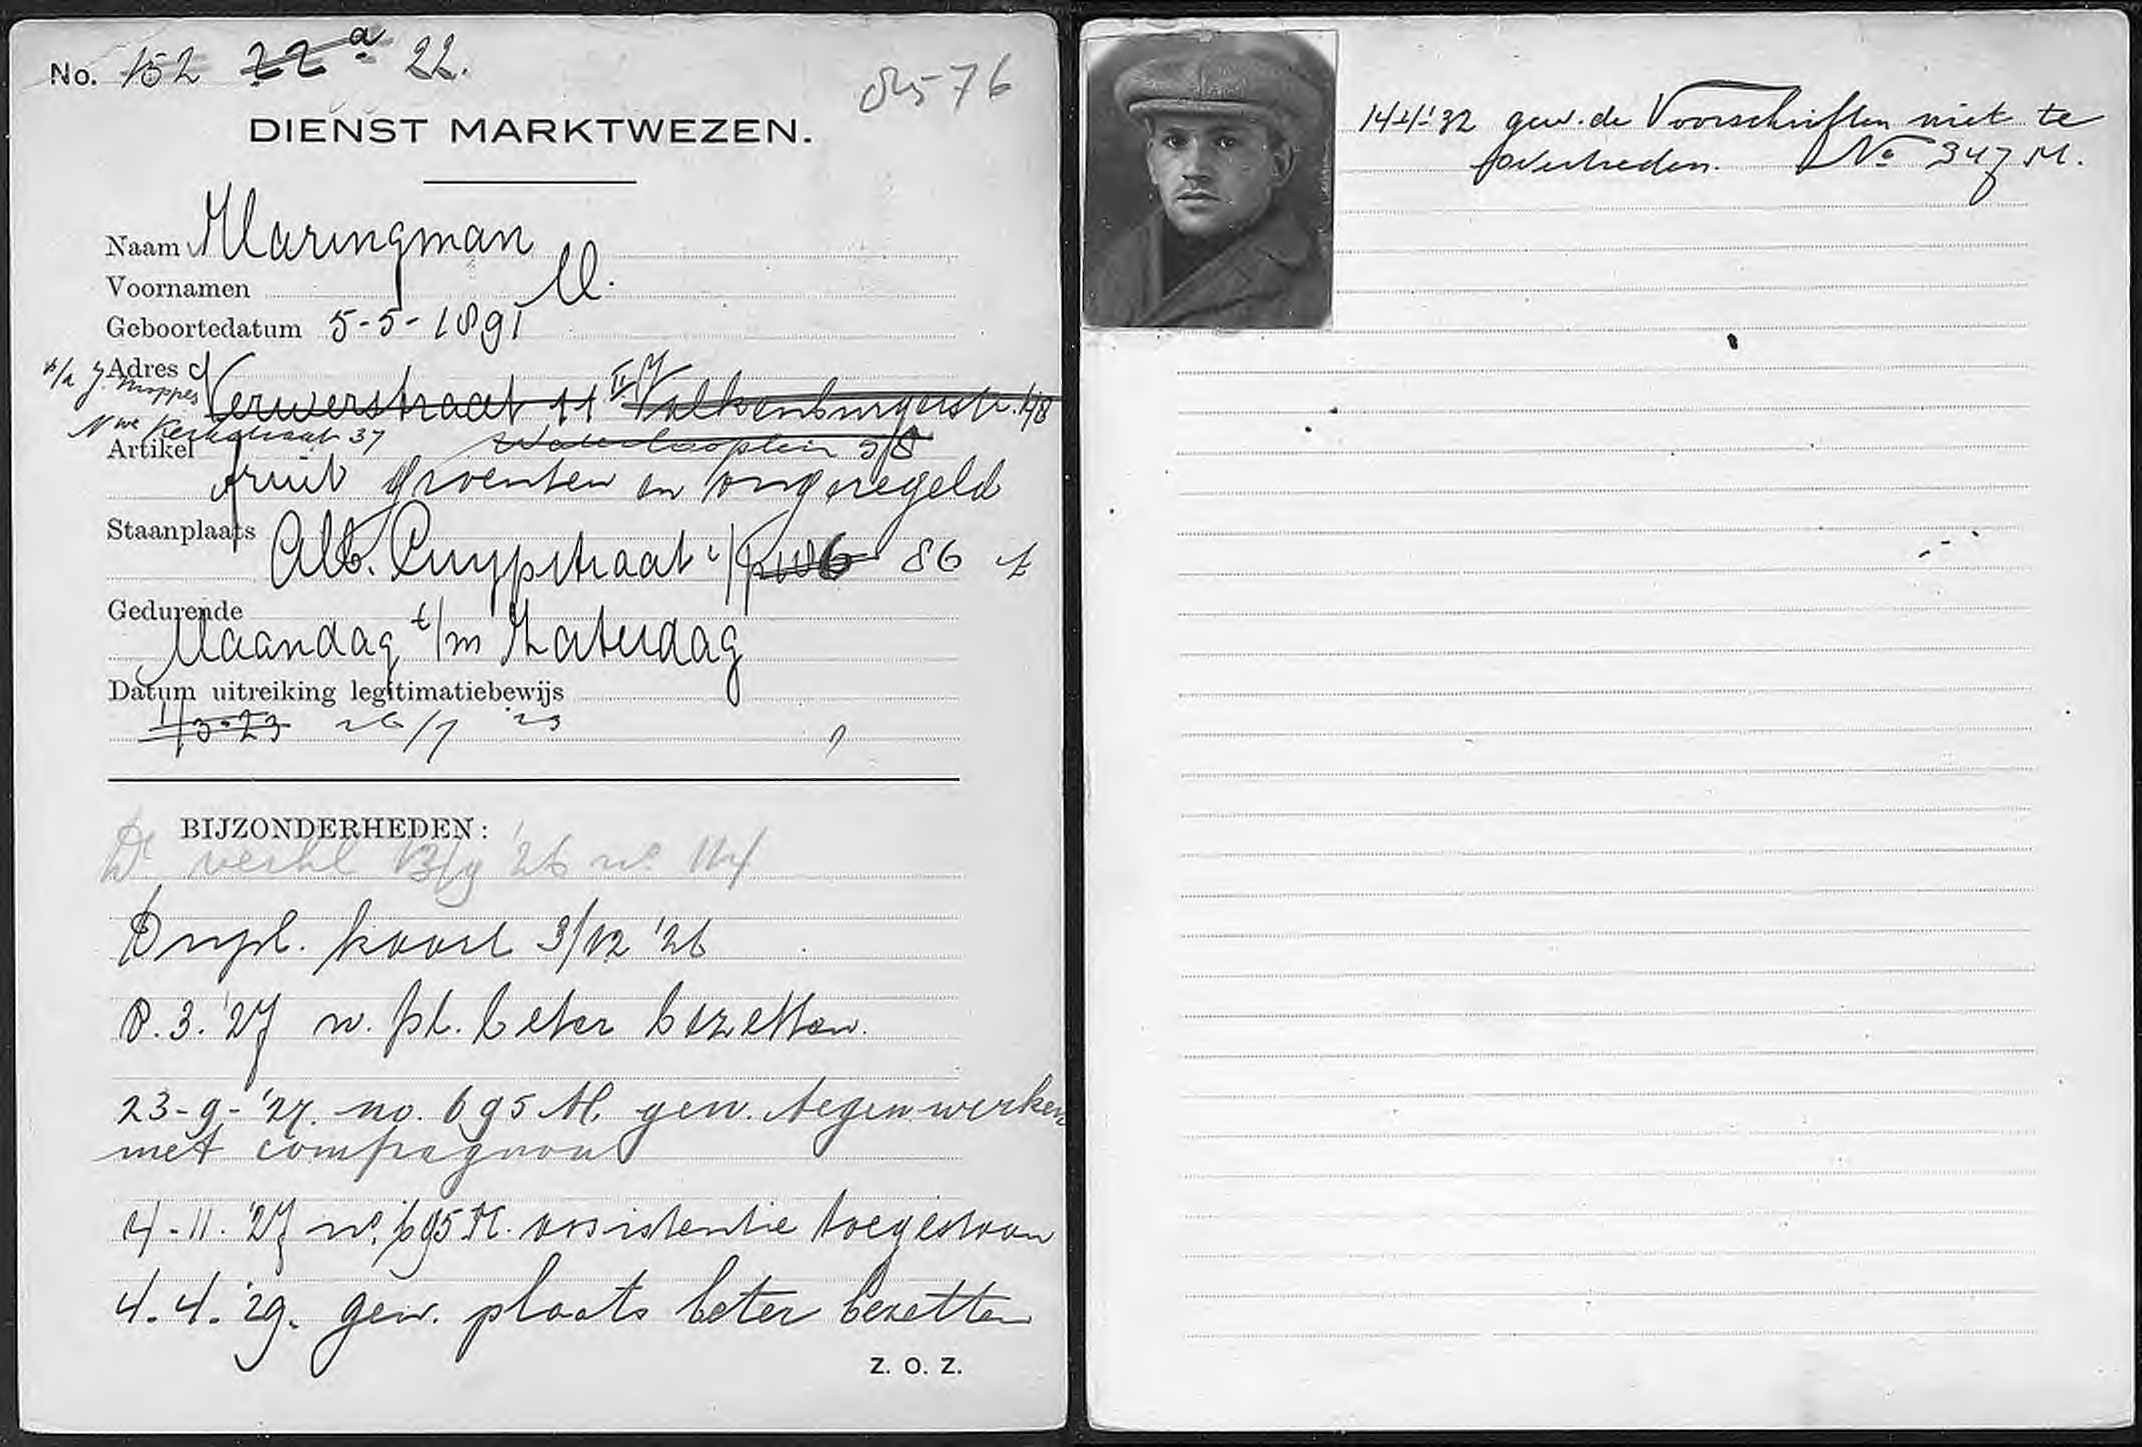 No. 152 22 a 22.
8576
DIENST MARKTWEZEN.
Naam Maringman
Voornamen M.
Geboortedatum 5-5-1891
Adres
b/a J. Moppes Verwerstraat 11 II Valkenburgerstr. 148
Nwe Kerkstraat 37 Waterlooplein 58
Artikel
fruit groenten en ongeregeld
Staanplaats
Alb. Cuypstraat 86
Gedurende
Maandag t/m Zaterdag
Datum uitreiking legitimatiebewijs
1/3-23 26/7 '23
BIJZONDERHEDEN:
'26 no.
Dupl. kaart 3/12 '26
8.3.'27 w. pl. beter bezetten.
23-9-'27. no. 695 M. gew. tegen werken
met compagnon
4-11.'27 no. 695 M. assistentie toegestaan
4.4.'29. gew. plaats beter bezetten
Z. O. Z.
14-4-'32 gew. de Voorschriften niet te
overtreden. No 347 M.